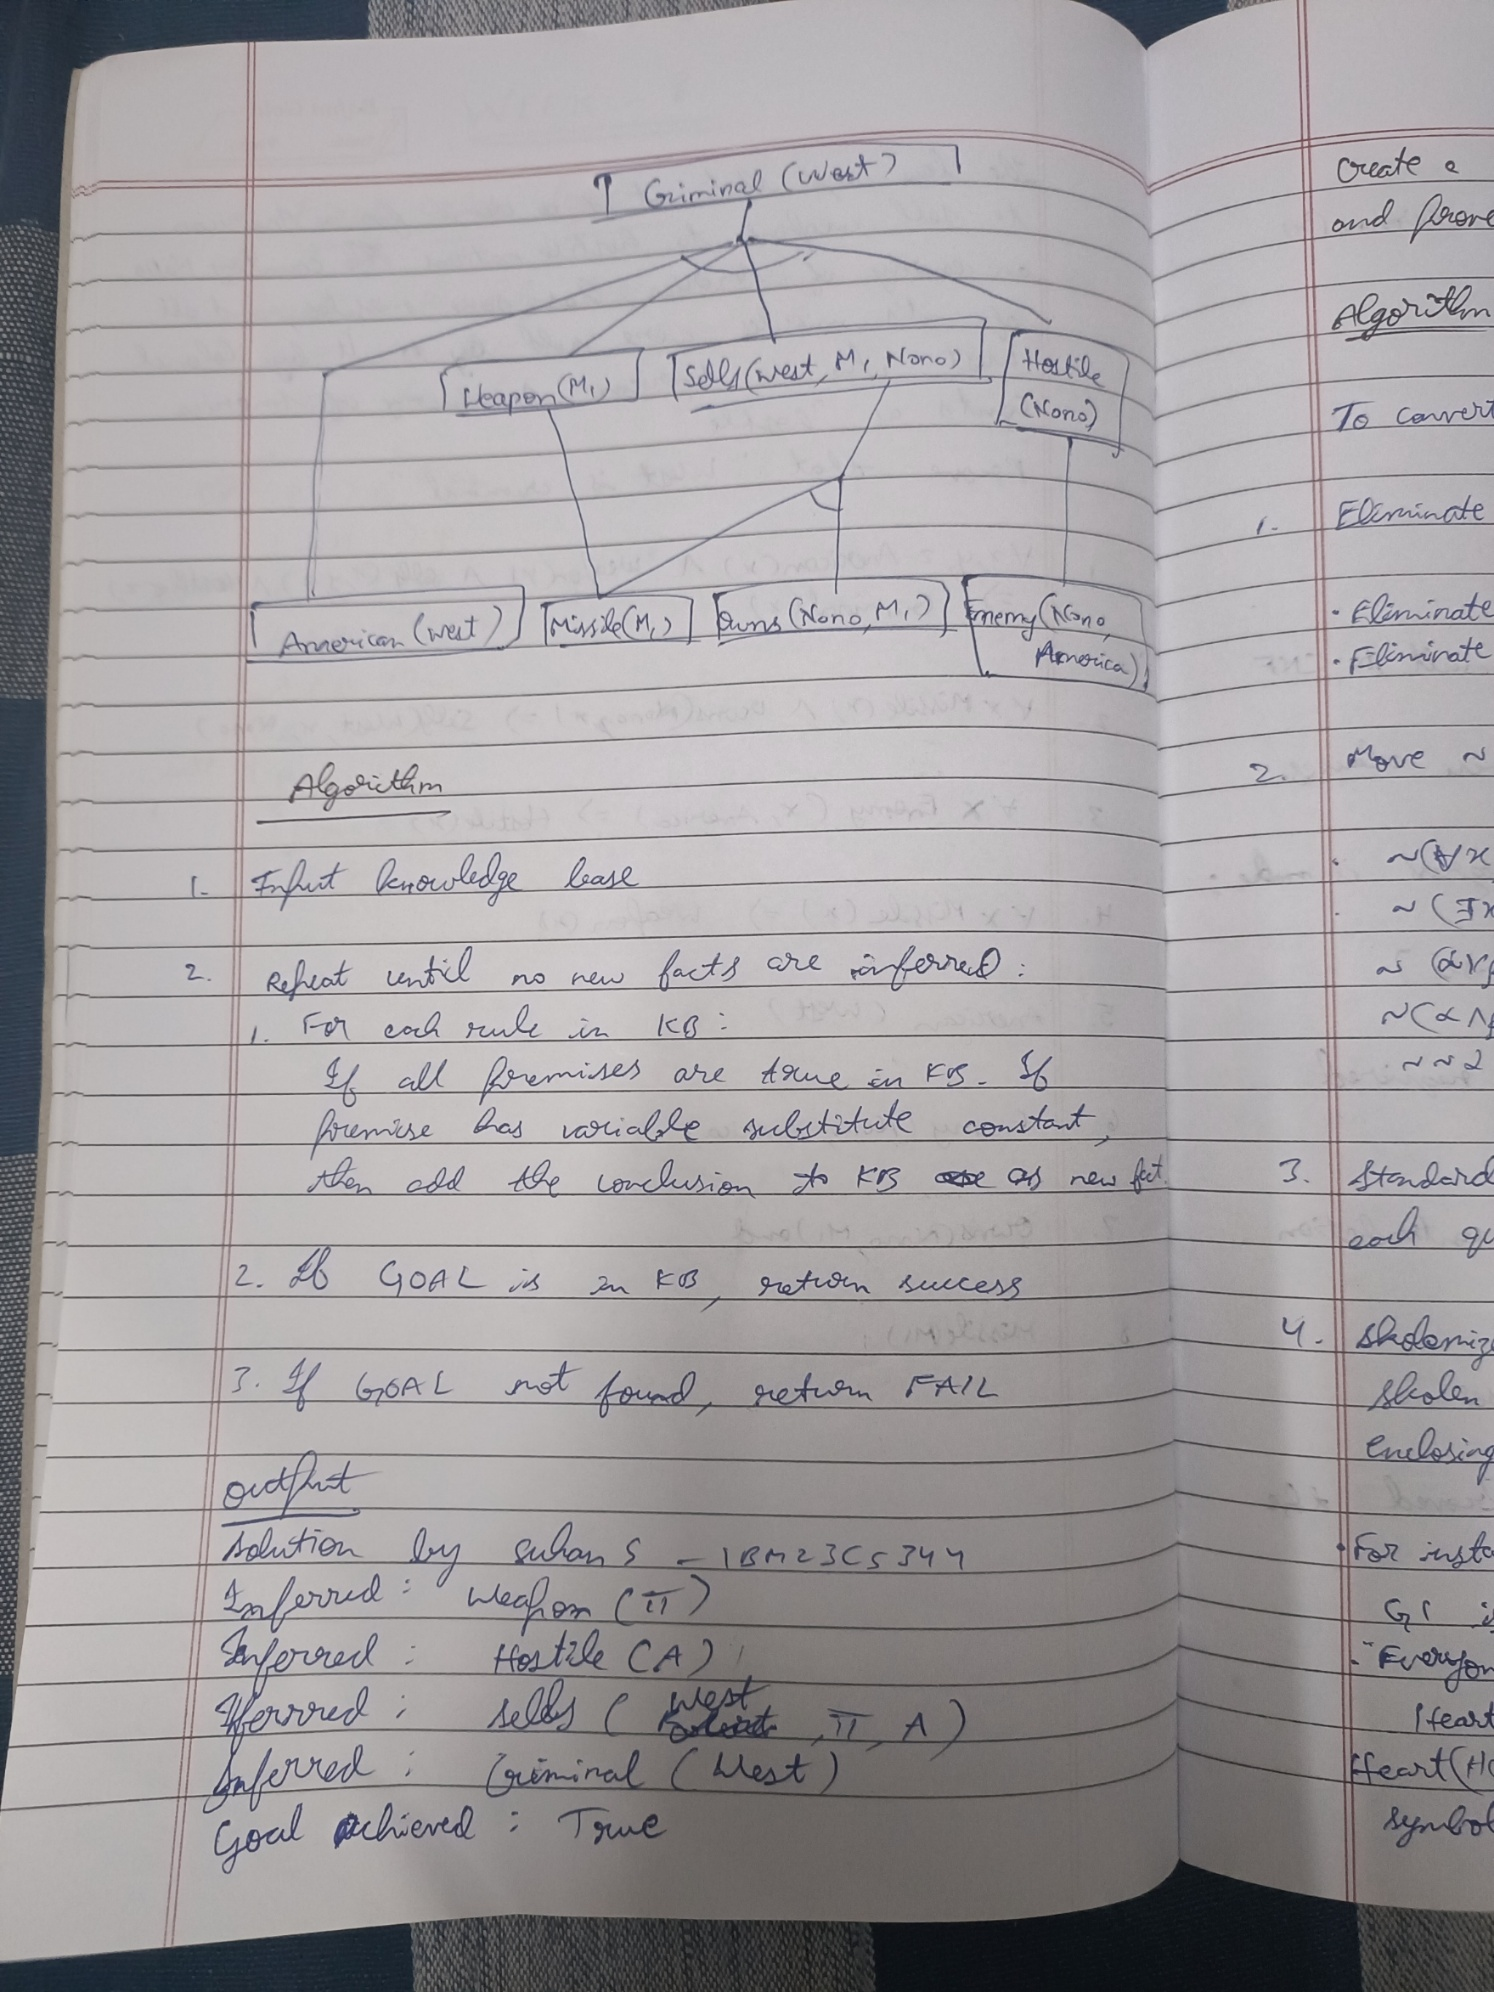 Criminal (West)
Weapon(M1)
Sells(West, M1, Nono)
Hostile
(Nono)
American (West)
Missile(M1)
Owns (Nono, M1)
Enemy (Nono,
America)
Algorithm
1. Input knowledge base
2. Repeat until no new facts are inferred :
1. For each rule in KB :
If all premises are true in KB. If
premise has variable substitute constant,
then add the conclusion to KB as new fact.
2. If GOAL is in KB, return success
3. If GOAL not found, return FAIL
output
solution by suhan S - 1BM23CS344
Inferred : Weapon (
Inferred : Hostile (A)
Iferred : sells ( West , , A )
Inferred : Criminal ( West )
Goal achieved : True
Create a
and prove
Algorithm
To convert
1. Eliminate
• Eliminate
• Eliminate
2. Move ~
• ~(∀x
• ~ (∃x
~ (αv
~(α∧
~~α
3. Standard
each qu
4. skolemiz
skolem
enclosing
• For insta
is
"Everyon
Heart
Heart(H
symbol